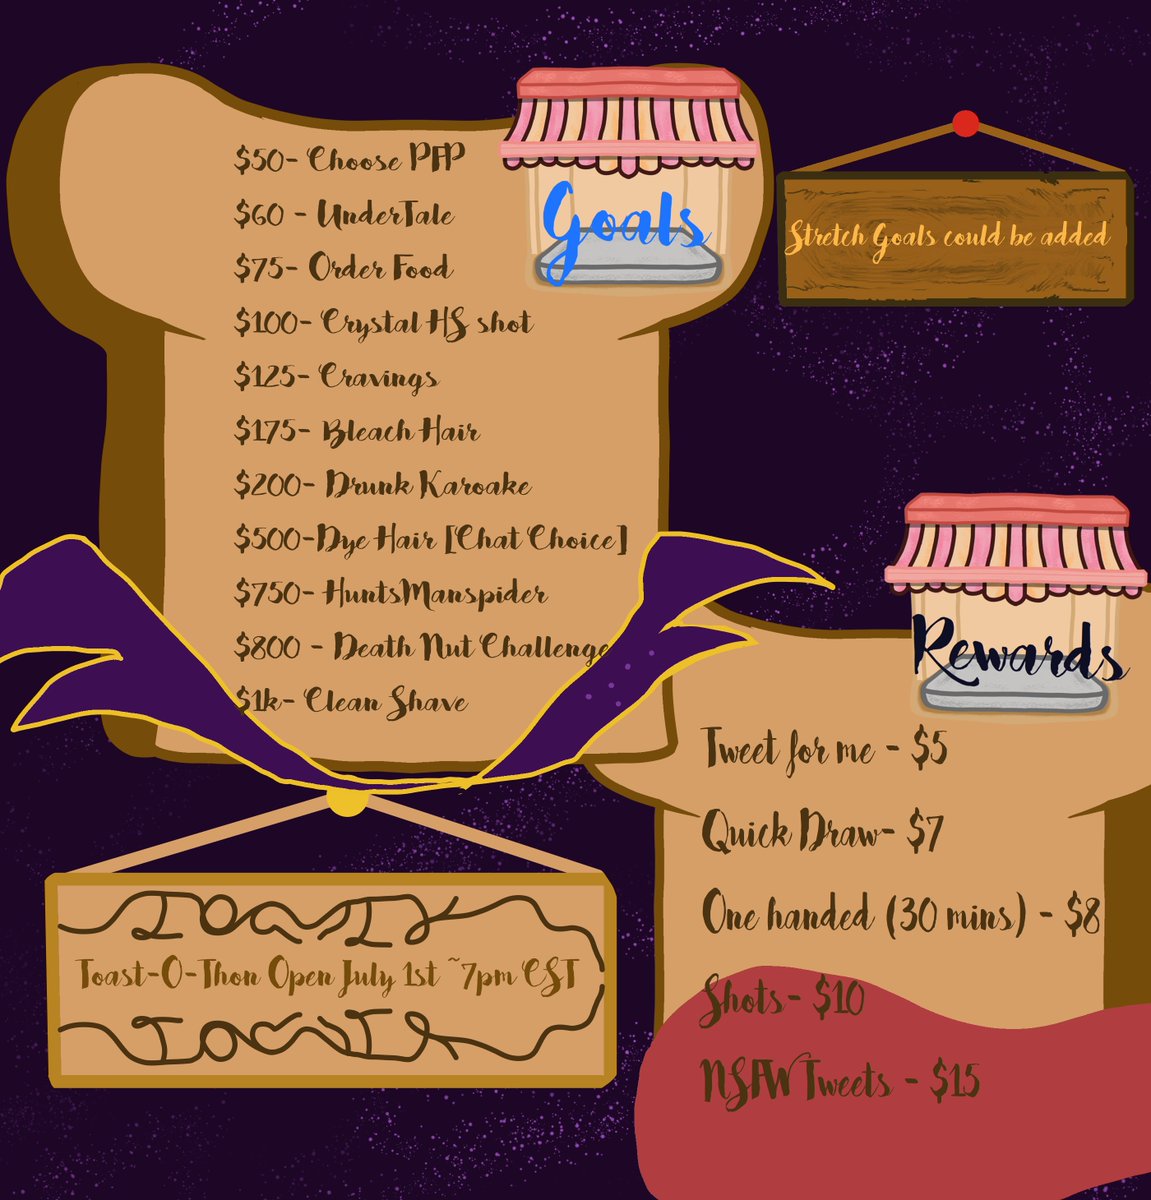 Goals
$50- Choose PFP
$60 - UnderTale
$75- Order Food
$100- Crystal HS shot
$125- Cravings
$175- Bleach Hair
$200- Drunk Karoake
$500-Dye Hair [Chat Choice]
$750- HuntsManspider
$800 - Death Nut Challenge
$1k- Clean Shave
Stretch Goals could be added
Rewards
Tweet for me - $5
Quick Draw- $7
One handed (30 mins) - $8
Shots- $10
NSFW Tweets - $15
Toast-O-Thon Open July 1st ~7pm CST